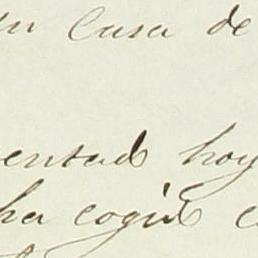 en casa de
entado hoy
ha cogido